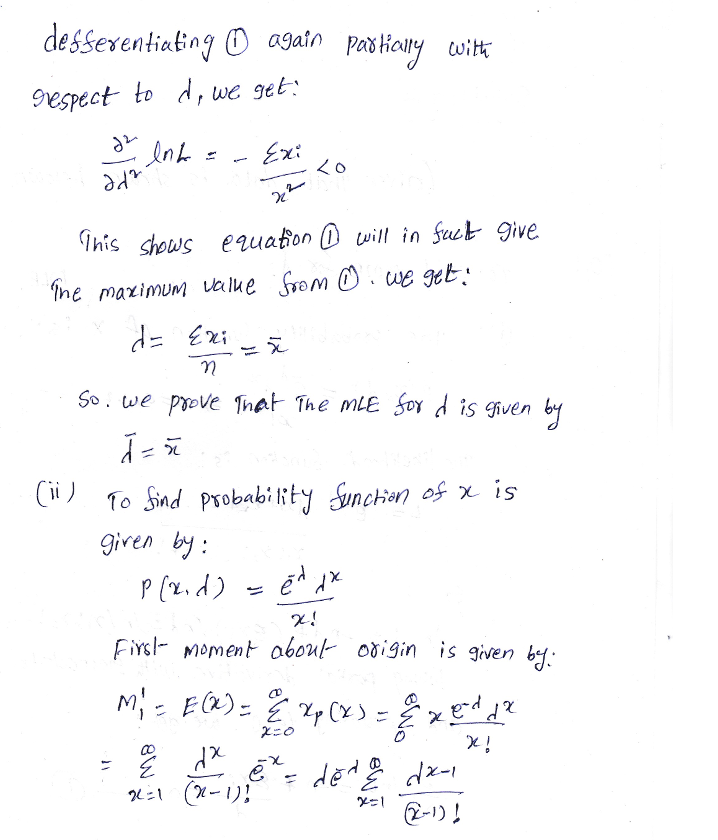 defferentiating ① again partially with
respect to d, we get:
∂²/∂d² lnL = - Σxi/x² <0
This shows equation ① will in fact give
The maximum value from ①. we get:
d = Σxi/n = x̄
So. we prove That The MLE for d is given by
d̄ = x̄
(ii) To find probability function of x is
given by:
P(x.d) = e^-d d^x / x!
First moment about origin is given by:
M₁' = E(x) = Σ_{x=0}^∞ xp(x) = Σ_0^∞ x e^-d d^x / x!
= Σ_{x=1}^∞ d^x/(x-1)! e^-x = de^-d Σ_{x=1}^∞ d^x-1/(x-1)!